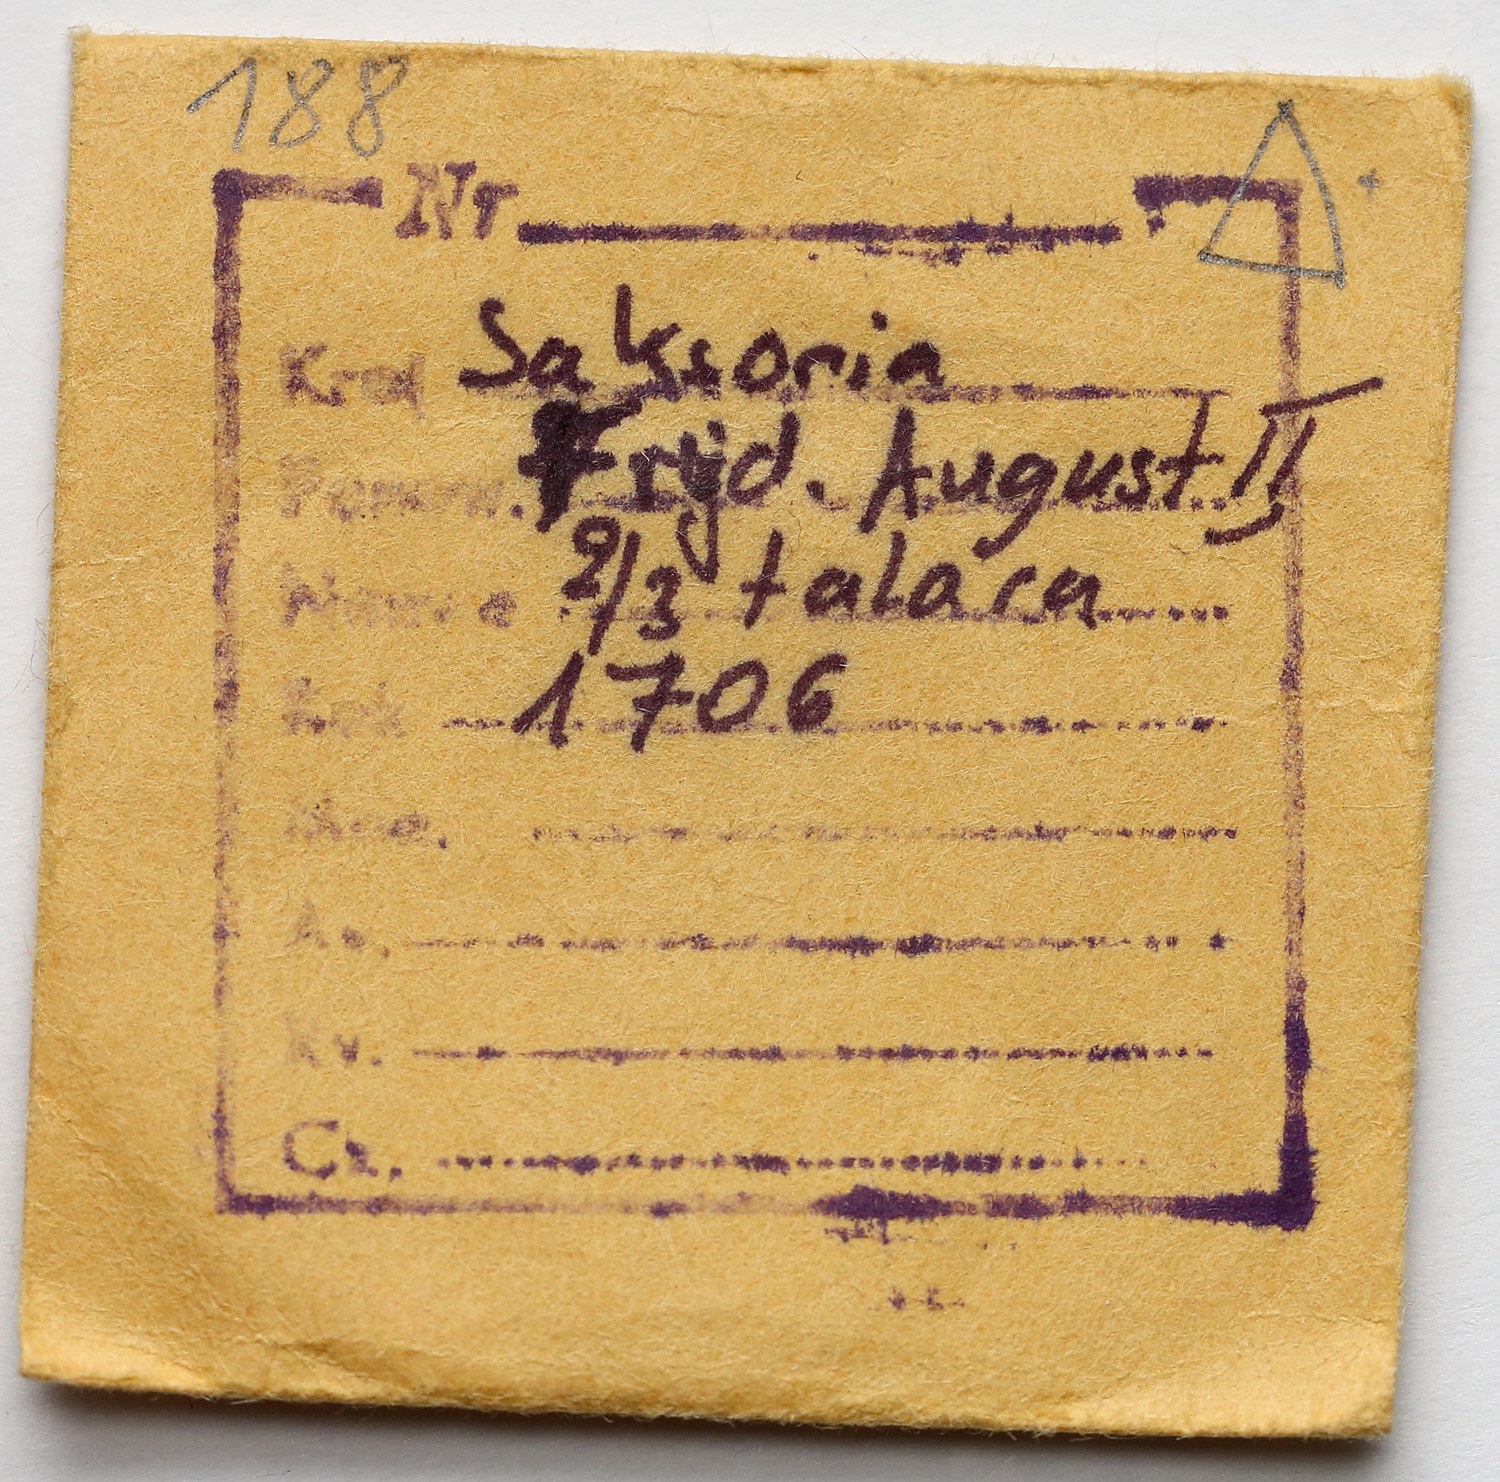 188
Nr
Kraj Saksonia
Panow. Fryd. August II
Nazwa 2/3 talara
Rok 1706
Av.
Rv.
Cz.